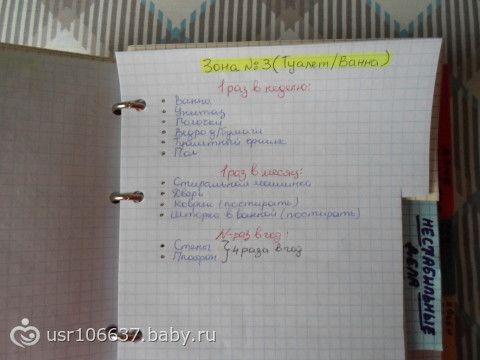 Зона №3 (Туалет/Ванна)
1 раз в неделю:
• Ванна
• Унитаз
• Полочки
• Ведро д/бумаги
• Туалетный ёршик
• Пол
1 раз в месяц:
• Стиральная машинка
• Дверь
• Коврик (постирать)
• Шторка в ванной (постирать)
N-раз в год:
• Стены
• Плафон } 4 раза в год
НЕСТАБИЛЬНЫЕ
ДЕЛА
usr106637.baby.ru